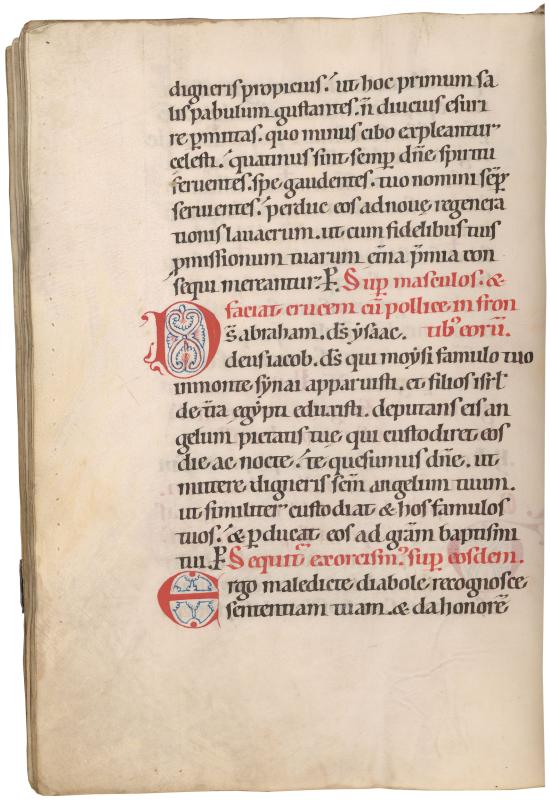 digneris propicius. ut hoc primum sa
lis pabulum gustantes. ñ diucius esuri
re ꝑmittas. quo minus cibo expleantur
celesti. quatinus sint semꝑ dñe spiritu
feruentes. spe gaudentes. tuo nomini sēꝑ
seruientes. perduc eos ad nouę regenera
tionis lauacrum. ut cum fidelibus tuis
ꝓmissionum tuarum etna p̄mia con
sequi mereantur. P. Suꝑ masculos. &
faciat crucem cū pollice in fron
D̄s abraham. ds̄ ysaac. tib' eorū.
deus iacob. ds̄ qui moysi famulo tuo
in monte synai apparuisti. et filios isrl̄
de t̄ra egypti eduxisti. deputans eis an
gelum pietatis tuę qui custodiret eos
die ac nocte. te quesumus dñe. ut
mittere digneris scm̄ angelum tuum.
ut similiter custodiat & hos famulos
tuos. & ꝑducat eos ad grām baptismi
tui. P. Sequit̄ exorcism'. suꝑ eosdem.
Ergo maledicte diabole recognosce
sententiam tuam. & da honorē